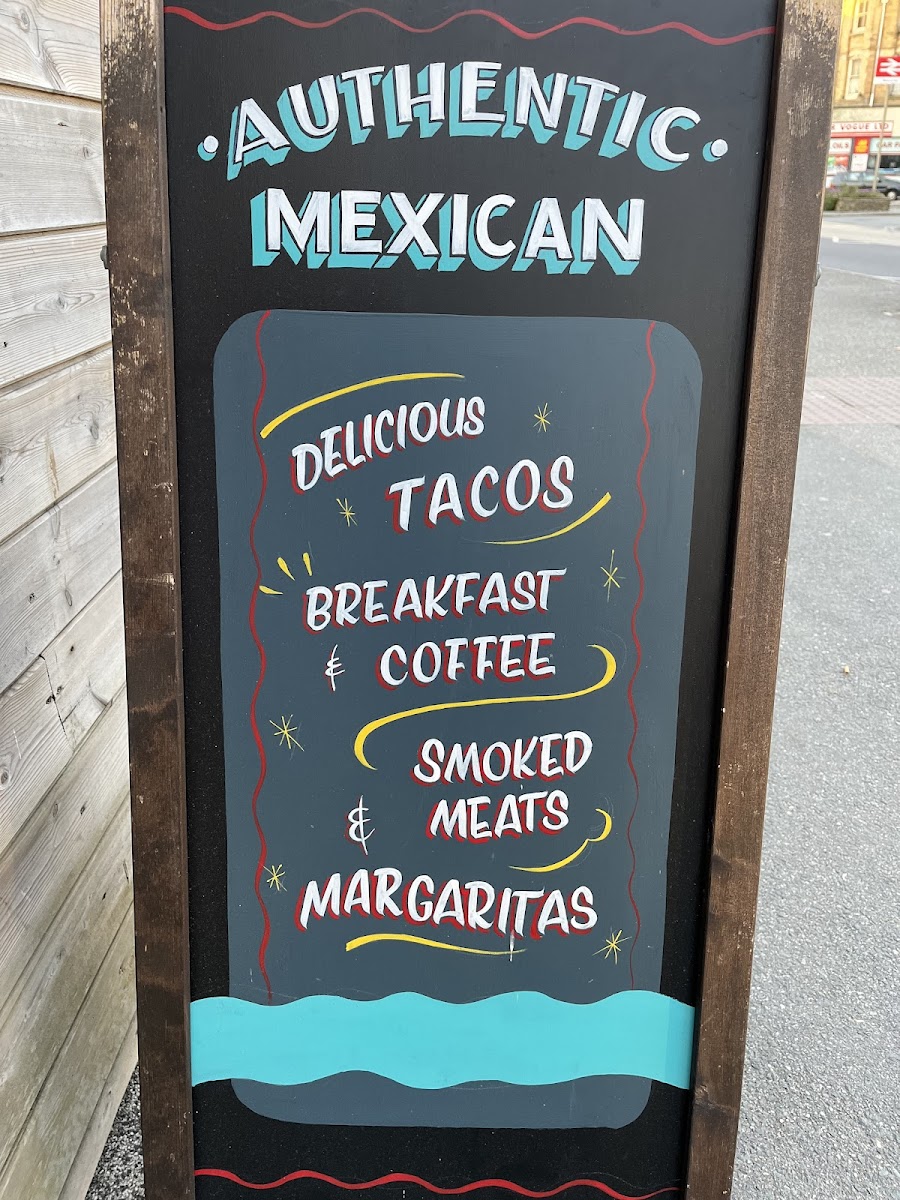 ·AUTHENTIC·
MEXICAN
DELICIOUS
TACOS
BREAKFAST
& COFFEE
SMOKED
& MEATS
MARGARITAS
VOGUE LTD